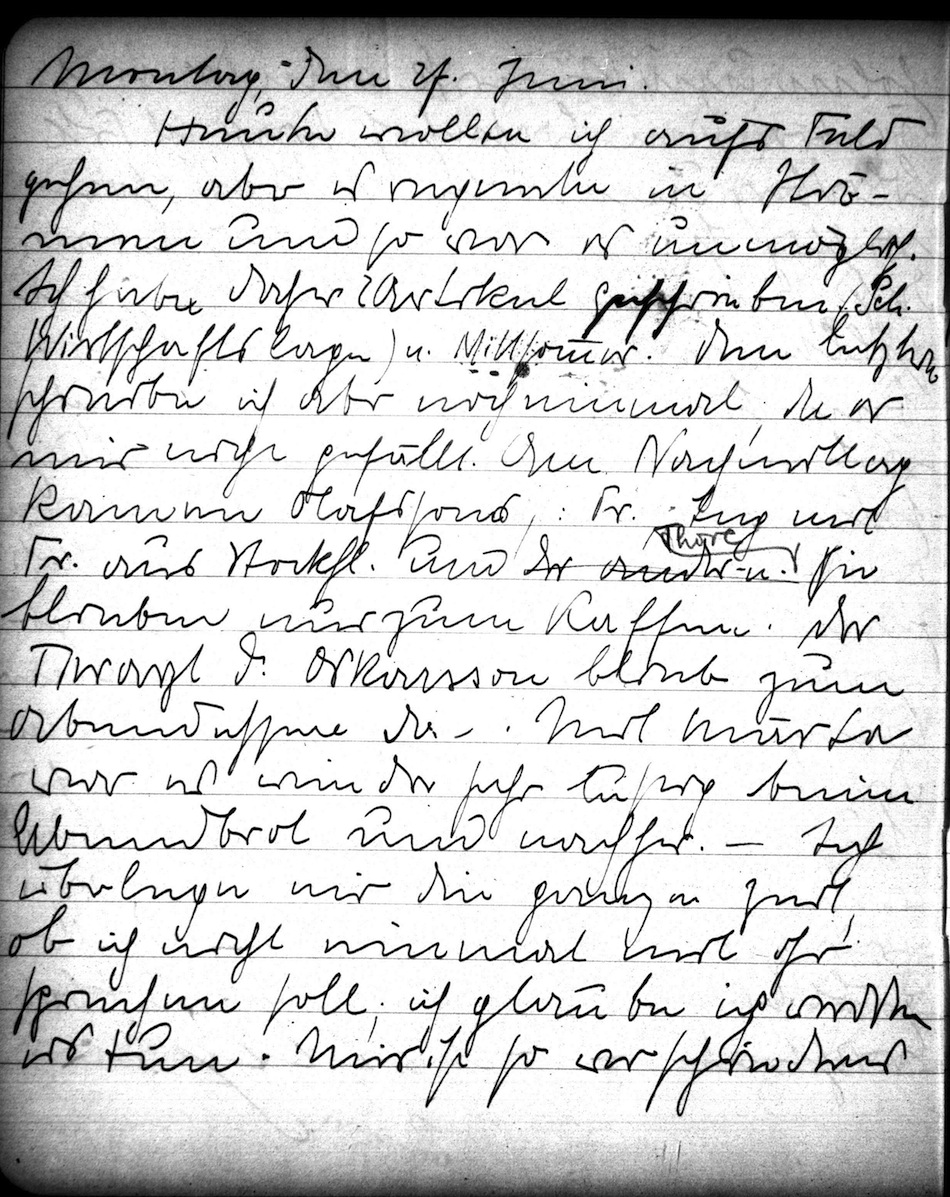 Montag, den 27. Juni.
Heute wollte ich aufs Feld
gehen, aber es regnete in Strö-
men und so war es unmöglich.
Ich habe daher 2 Artikel geschrieben (Sch.
Wirtschaftslage) u. Mittsommer. Den letzten
schreibe ich aber noch einmal, da er
mir nicht gefällt. Am Nachmittag
kamen Olafssons, : Fr. Ing mit
Fr. aus Stockh. und der ander u. Thore Sie
blieben nur zum Kaffee. Der
Tierarzt d. Oskarsson blieb zum
Abendessen da –. Mit Märta
war es wieder sehr lustig beim
Abendbrot und nachher. – Ich
überlege mir die ganze Zeit,
ob ich nicht einmal mit ihr
sprechen soll, ich glaube ich werde
es tun. Mir ist so verschiedenes